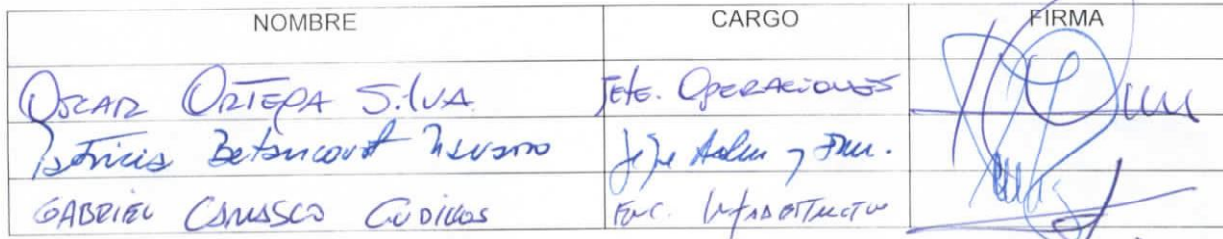 NOMBRE CARGO FIRMA
OSCAR ORTEGA SILVA JEFE. OPERACIONES
Patricia Betancourt Navarro Jefe Adm y Fin.
GABRIEL CARRASCO ENC.